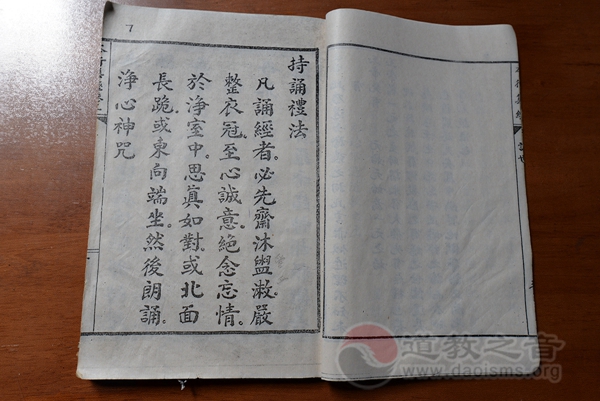 7
持誦禮法
凡誦經者。必先齋沐盥漱。嚴
整衣冠。至心誠意。絶念忘情。
於淨室中。思真如對。或北面
長跪。或東向端坐。然後朗誦。
淨心神咒
道教之音
www.daoisms.org